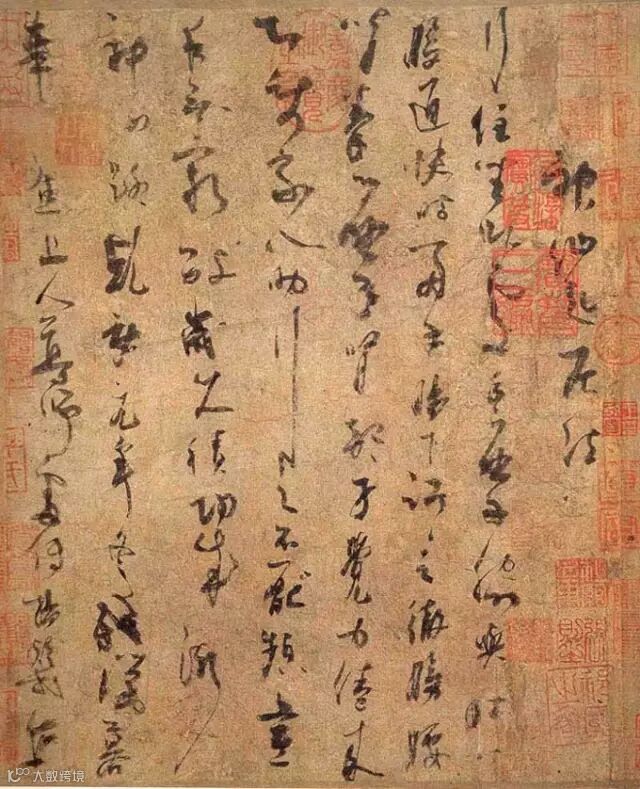 神仙起居法
行住坐臥處手摩脅與肚心
腹通快時兩手腸下踞踞之徹膀腰
背拳摩腎部才覺力倦來
即使家人助行之不厭頻晝
夜無窮數歲久積功成漸入
神仙路乾祐元年冬殘臘暮
華焦上人尊師處傳楊凝式
大数跨境